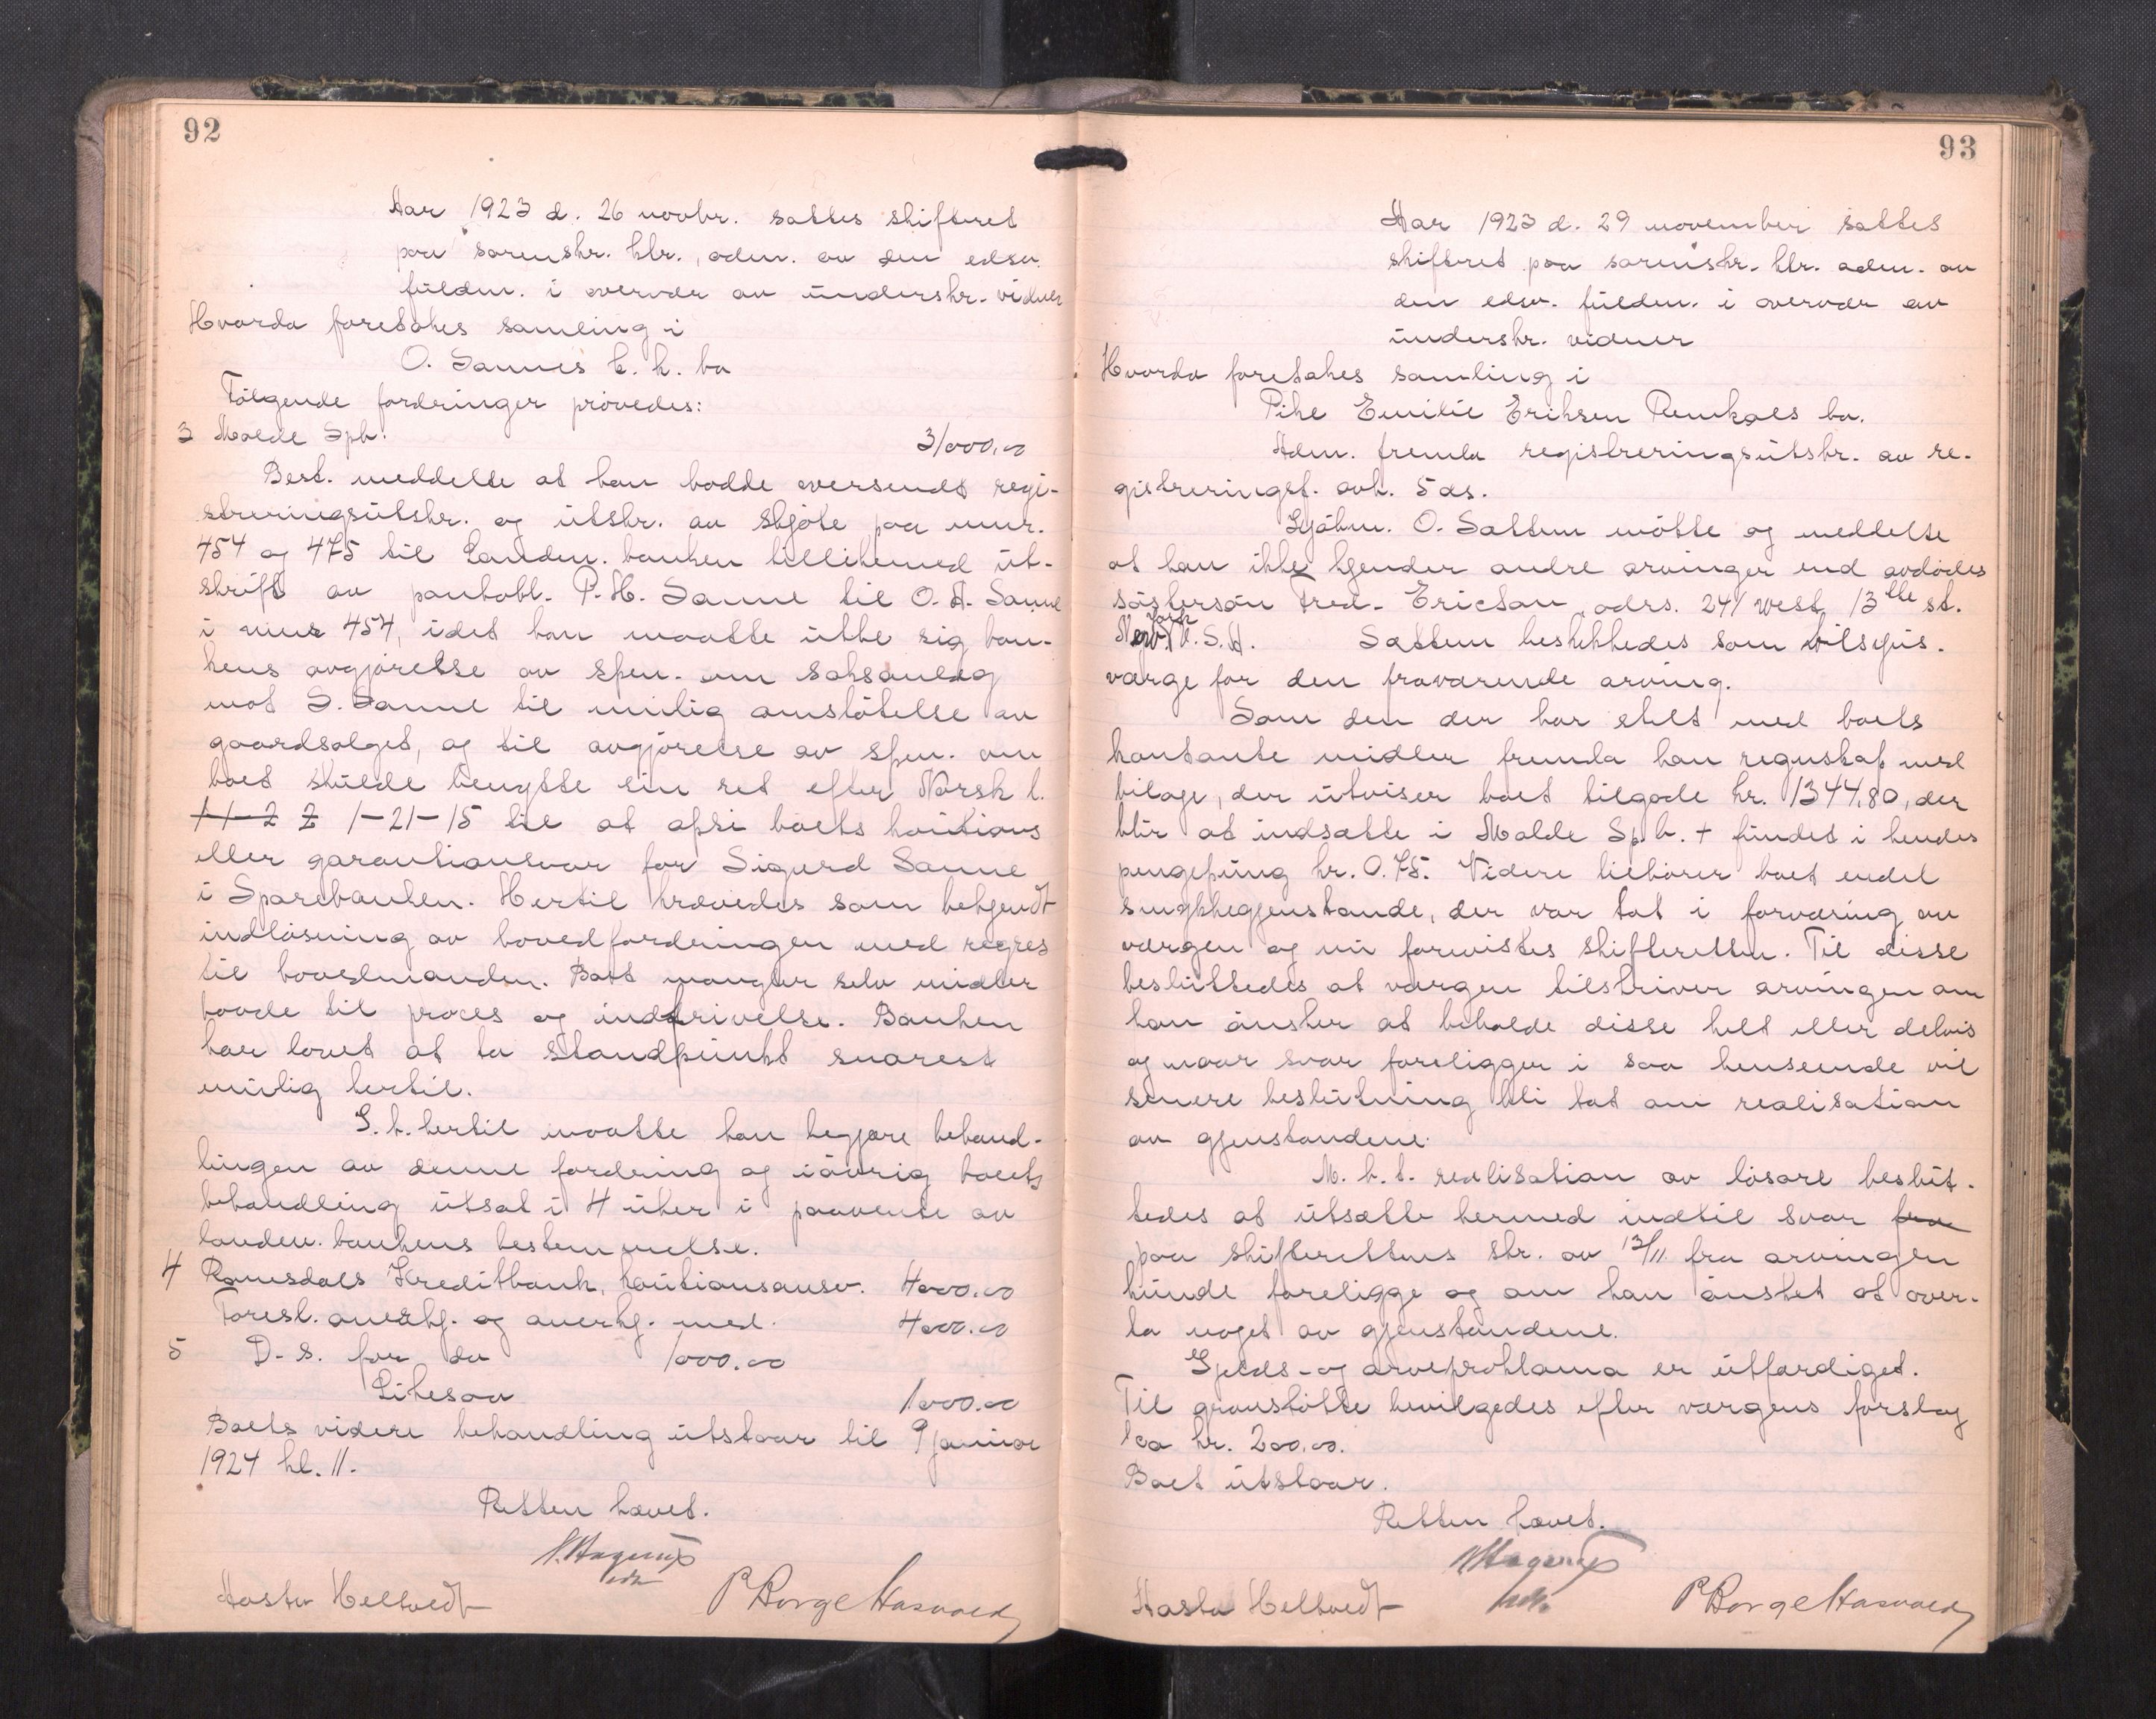 92
Aar 1923 d. 26 novbr. sattes skifteret
paa sorenskr. ktr., adm. av den edsv.
fuldm. i overvær av underskr. vidner
Hvorda foretokes samling i
O. Sannes t. k. bo
Følgende fordringer prøvedes:
3 Molde Spb. 31000.00
Best. meddelte at han hadde oversendt regi-
streringsutskr. og utskr. av skjøte paa mnr.
454 og 475 til Landm. banken tillikemed ut-
skrift av pantobl. P. H. Sanne til O. A. Sanne
i mnr 454, idet han maatte utbe sig ban-
kens avgjørelse av spm. om saksanlæg
mot S. Sanne til mulig omstøtelse av
gaardsalget, og til avgjørelse av spm. om
boet skulde benytte sin ret efter Norsk l.
1-1-2 2 1-21-15 til at opsi boets kautions
eller garantiansvar for Sigurd Sanne
i Sparebanken. Hertil krævedes som bekjendt
indløsning av hovedfordringen med regres
til hovedmanden. Boet mangler selv midler
baade til proces og inddrivelse. Banken
har lovet at ta standpunkt snarest
mulig hertil.
I. h. hertil maatte han begjære behand-
lingen av denne fordring og iøvrig boets
behandling utsat i 4 uker i paavente av
landm. bankens bestemmelse.
4 Romsdals Kreditbank, kautionsansv. 4000.00
Foresl. anerkj. og anerkj. med. 4000.00
5 D. s. for do 1000.00
Likesaa 1000.00
Boets videre behandling utstaar til 9 januar
1924 kl. 11.
Retten hævet.
H. Hagerup
edsv
Aasta Heltvedt
P Borge Hasvold
93
Aar 1923 d. 29 november sattes
skifteret paa sorenskr. ktr. adm. av
den edsv. fuldm. i overvær av
underskr. vidner
Hvorda foretokes samling i
Pike Emilie Eriksen Remkols bo.
Adm. fremla registreringsutskr. av re-
gistreringsf. avh. 5 ds.
Skjøhm. O. Sættem møtte og meddelte
at han ikke kjender andre arvinger end avdødes
søstersøn Fred. Ericson, adrs. 241 West, 13the st.
New York U. S. A. Sættem beskikkedes som tilsyns-
værge for den fraværende arving.
Som den der har stelt med boets
kontante midler fremla han regnskap med
bilage, der utviser boet tilgode kr. 1344,80, der
blir at indsætte i Molde Sp.b. + fundet i hendes
pengepung kr. 0.75. Videre tilhører boet endel
smykkegjenstande, der var tat i forvaring av
værgen og nu forevistes skifteretten. Til disse
besluttedes at værgen tilskriver arvingen om
han ønsker at beholde disse helt eller delvis
og naar svar foreligger i saa henseende vil
senere beslutning bli tat om realisation
av gjenstandene.
M. h. t. realisation av løsøre beslut-
tedes at utsætte hermed indtil svar fra
paa skifterettens skr. av 13/11 fra arvingen
kunde foreligge og om han ønsket at over-
ta noget av gjenstandene.
Gjelds- og arveproklama er utfærdiget.
Til gravstøtte bevilgedes efter værgens forslag
ca kr. 200.00.
Boet utstaar.
Retten hævet.
H Hagerup
edsv.
Aasta Heltvedt
P Borge Hasvold